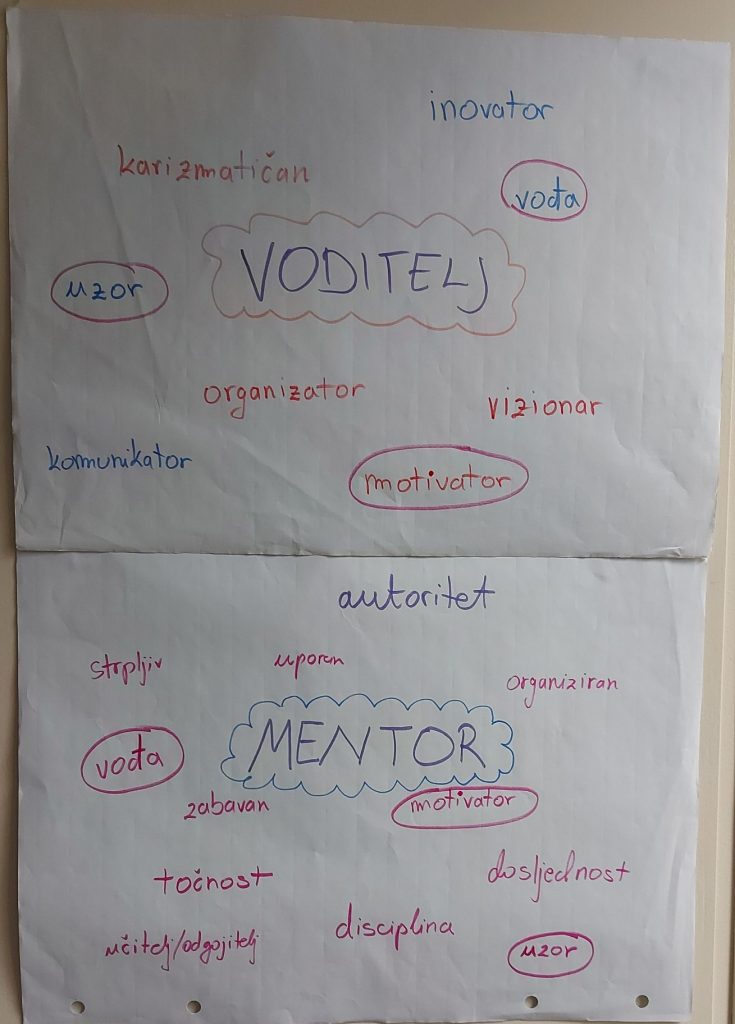 inovator
karizmatičan
vođa
VODITELJ
uzor
organizator
vizionar
komunikator
motivator
autoritet
strpljiv
uporan
organiziran
MENTOR
vođa
zabavan
motivator
točnost
dosljednost
disciplina
učitelj/odgojitelj
uzor